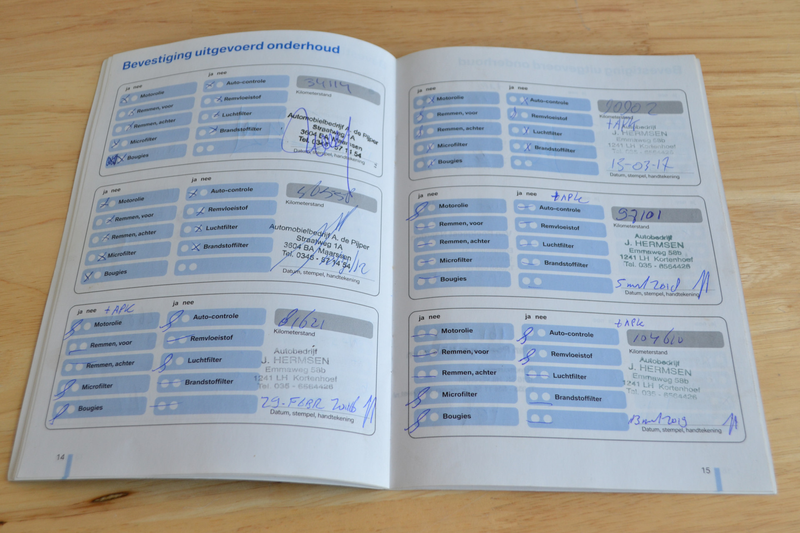 Bevestiging uitgevoerd onderhoud
ja nee
ja nee
Motorolie
Auto-controle
Remmen, voor
Remvloeistof
Kilometerstand
Remmen, achter
Luchtfilter
Automobielbedrijf A. de Pijper
Straatweg 1A
Microfilter
Brandstoffilter
3604 BA Maarssen
Tel. 0346 - 57 14 54
Bougies
Datum, stempel, handtekening
ja nee
ja nee
Motorolie
Auto-controle
Remmen, voor
Remvloeistof
Kilometerstand
Remmen, achter
Luchtfilter
Automobielbedrijf A. de Pijper
Straatweg 1A
Microfilter
Brandstoffilter
3604 BA Maarssen
Tel. 0346 - 57 14 54
Bougies
Datum, stempel, handtekening
ja nee + APK
ja nee
Motorolie
Auto-controle
81621
Remmen, voor
Remvloeistof
Kilometerstand
Remmen, achter
Luchtfilter
Autobedrijf
J. HERMSEN
Microfilter
Brandstoffilter
Emmaweg 58b
1241 LH Kortenhoef
Tel. 035 - 6564426
Bougies
29. FEBR 2016
Datum, stempel, handtekening
14
ja nee
ja nee
Motorolie
Auto-controle
90902
Remmen, voor
Remvloeistof
Kilometerstand
+APK
Remmen, achter
Luchtfilter
Autobedrijf
J. HERMSEN
Microfilter
Brandstoffilter
Emmaweg 58b
1241 LH Kortenhoef
Bougies
15-03-17
Datum, stempel, handtekening
ja nee
ja nee + APK
Motorolie
Auto-controle
97101
Remmen, voor
Remvloeistof
Kilometerstand
Remmen, achter
Luchtfilter
Autobedrijf
J. HERMSEN
Microfilter
Brandstoffilter
Emmaweg 58b
1241 LH Kortenhoef
Tel. 035 - 6564426
Bougies
5 mrt 2018
Datum, stempel, handtekening
ja nee
ja nee + APK
Motorolie
Auto-controle
104610
Remmen, voor
Remvloeistof
Kilometerstand
Remmen, achter
Luchtfilter
Autobedrijf
J. HERMSEN
Microfilter
Brandstoffilter
Emmaweg 58b
1241 LH Kortenhoef
Tel. 035 - 6564426
Bougies
13 mrt 2019
Datum, stempel, handtekening
15